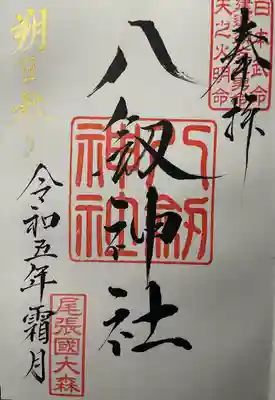 奉拝
日本武命
天之火明命
八釼神社
八劔
神社
朔日参り
令和五年霜月
尾張國大森